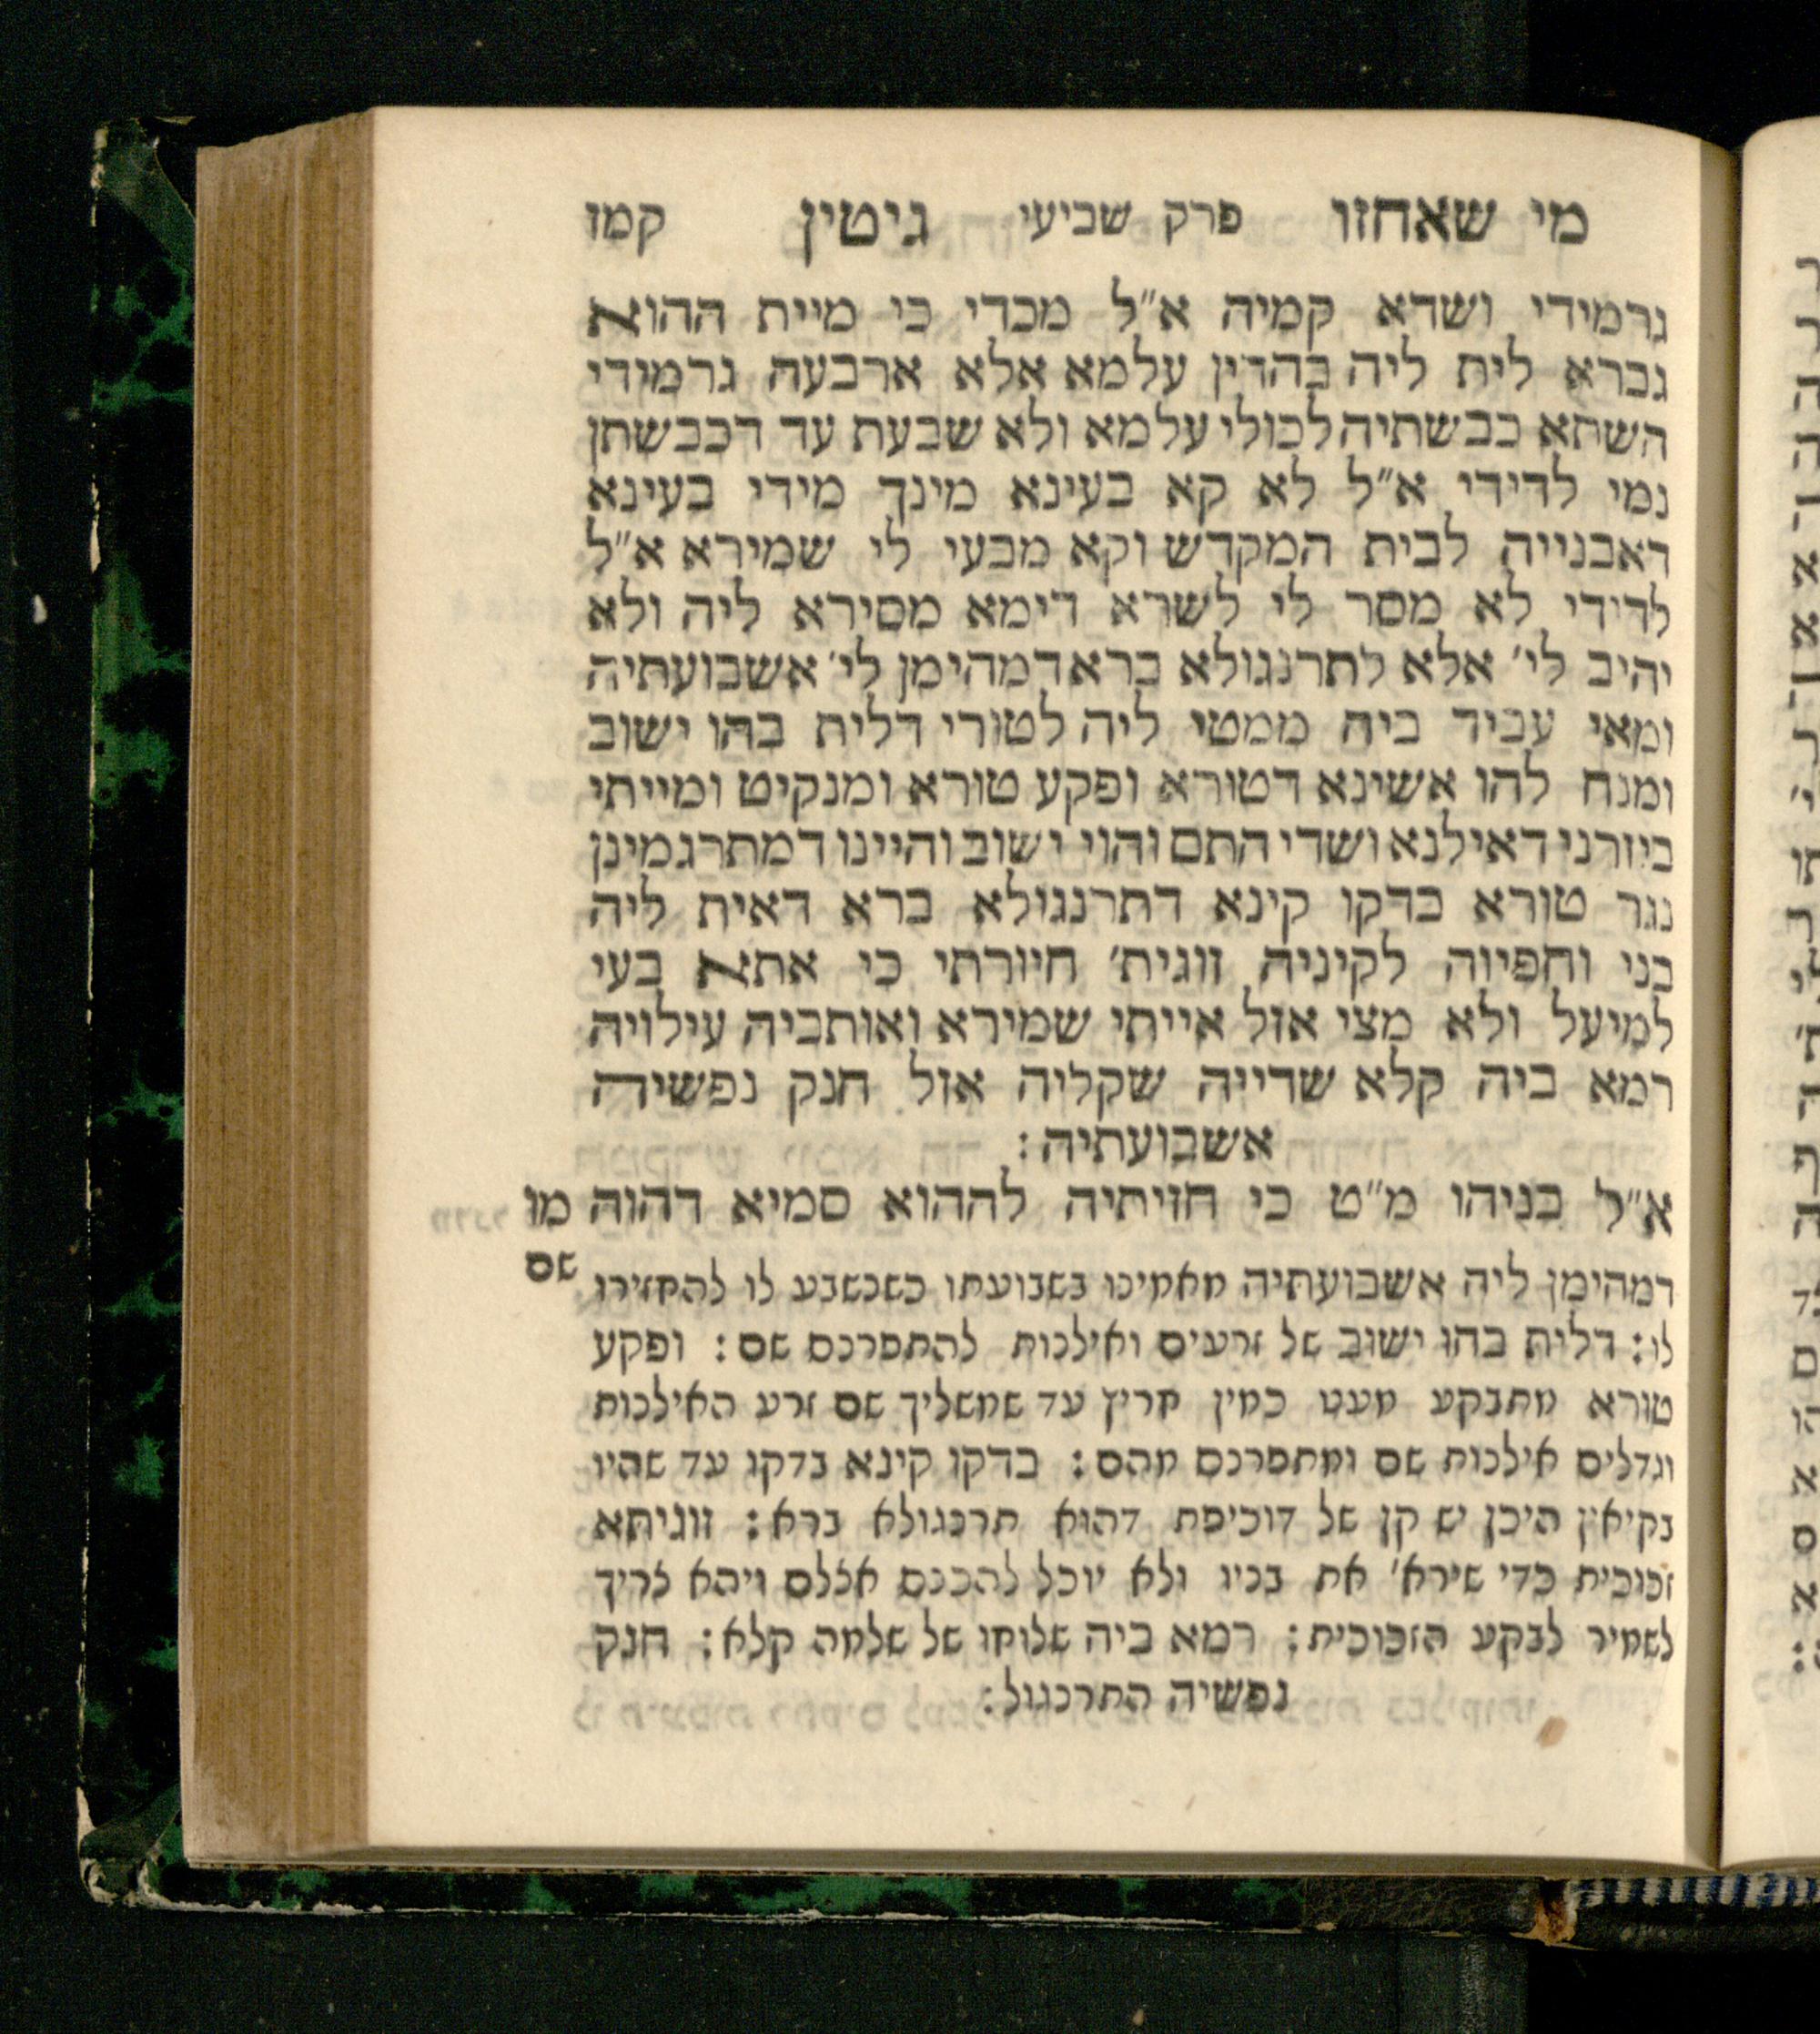 מי שאחזו פרק שביעי גיטין קמז
גרמידי ושדא קמיה א״ל מכדי כי מיית ההוא
גברא לית ליה בהדין עלמא אלא ארבעה גרמידי
השתא כבשתיה לכולי עלמא ולא שבעת עד דכבשתן
נמי לדידי א״ל לא קא בעינא מינך מידי בעינא
דאבנייה לבית המקדש וקא מבעי לי שמירא א״ל
לדידי לא מסר לי לשרא דימא מסירא ליה ולא
יהיב לי׳ אלא לתרנגולא ברא דמהימן לי׳ אשבועתיה
ומאי עביד ביה ממטי ליה לטורי דלית בהו ישוב
ומנח להו אשינא דטורא ופקע טורא ומנקיט ומייתי
ביזרני דאילנא ושדי התם והוי ישוב והיינו דמתרגמינן
נגר טורא בדקו קינא דתרנגולא ברא דאית ליה
בני וחפיוה לקיניה זוגית׳ חיורתי כי אתא בעי
למיעל ולא מצי אזל אייתי שמירא ואותביה עילויה
רמא ביה קלא שדייה שקליה אזל חנק נפשיה
אשבועתיה:
א״ל בניהו מ״ט כי חזיתיה לההוא סמיא דהוה מו
שם
דמהימן ליה אשבועתיה מאמינו בשבועתו כשנשבע לו להחזירו
לו: דלית בהו ישוב של זרעים ואילנות להתפרנס שם: ופקע
טורא מתבקע מעט כמין חריץ עד שמשליך שם זרע האילנות
וגדלים אילנות שם ומתפרנס מהם: בדקו קינא בדקו עד שהיו
בקיאין היכן יש קן של דוכיפת דהוא תרנגולא ברא: זוגיתא
זכוכית כדי שירא׳ את בניו ולא יוכל להכנס אצלם ויהא צריך
לשמיר לבקע הזכוכית: רמא ביה שלוחו של שלמה קלא: חנק
נפשיה התרנגול: